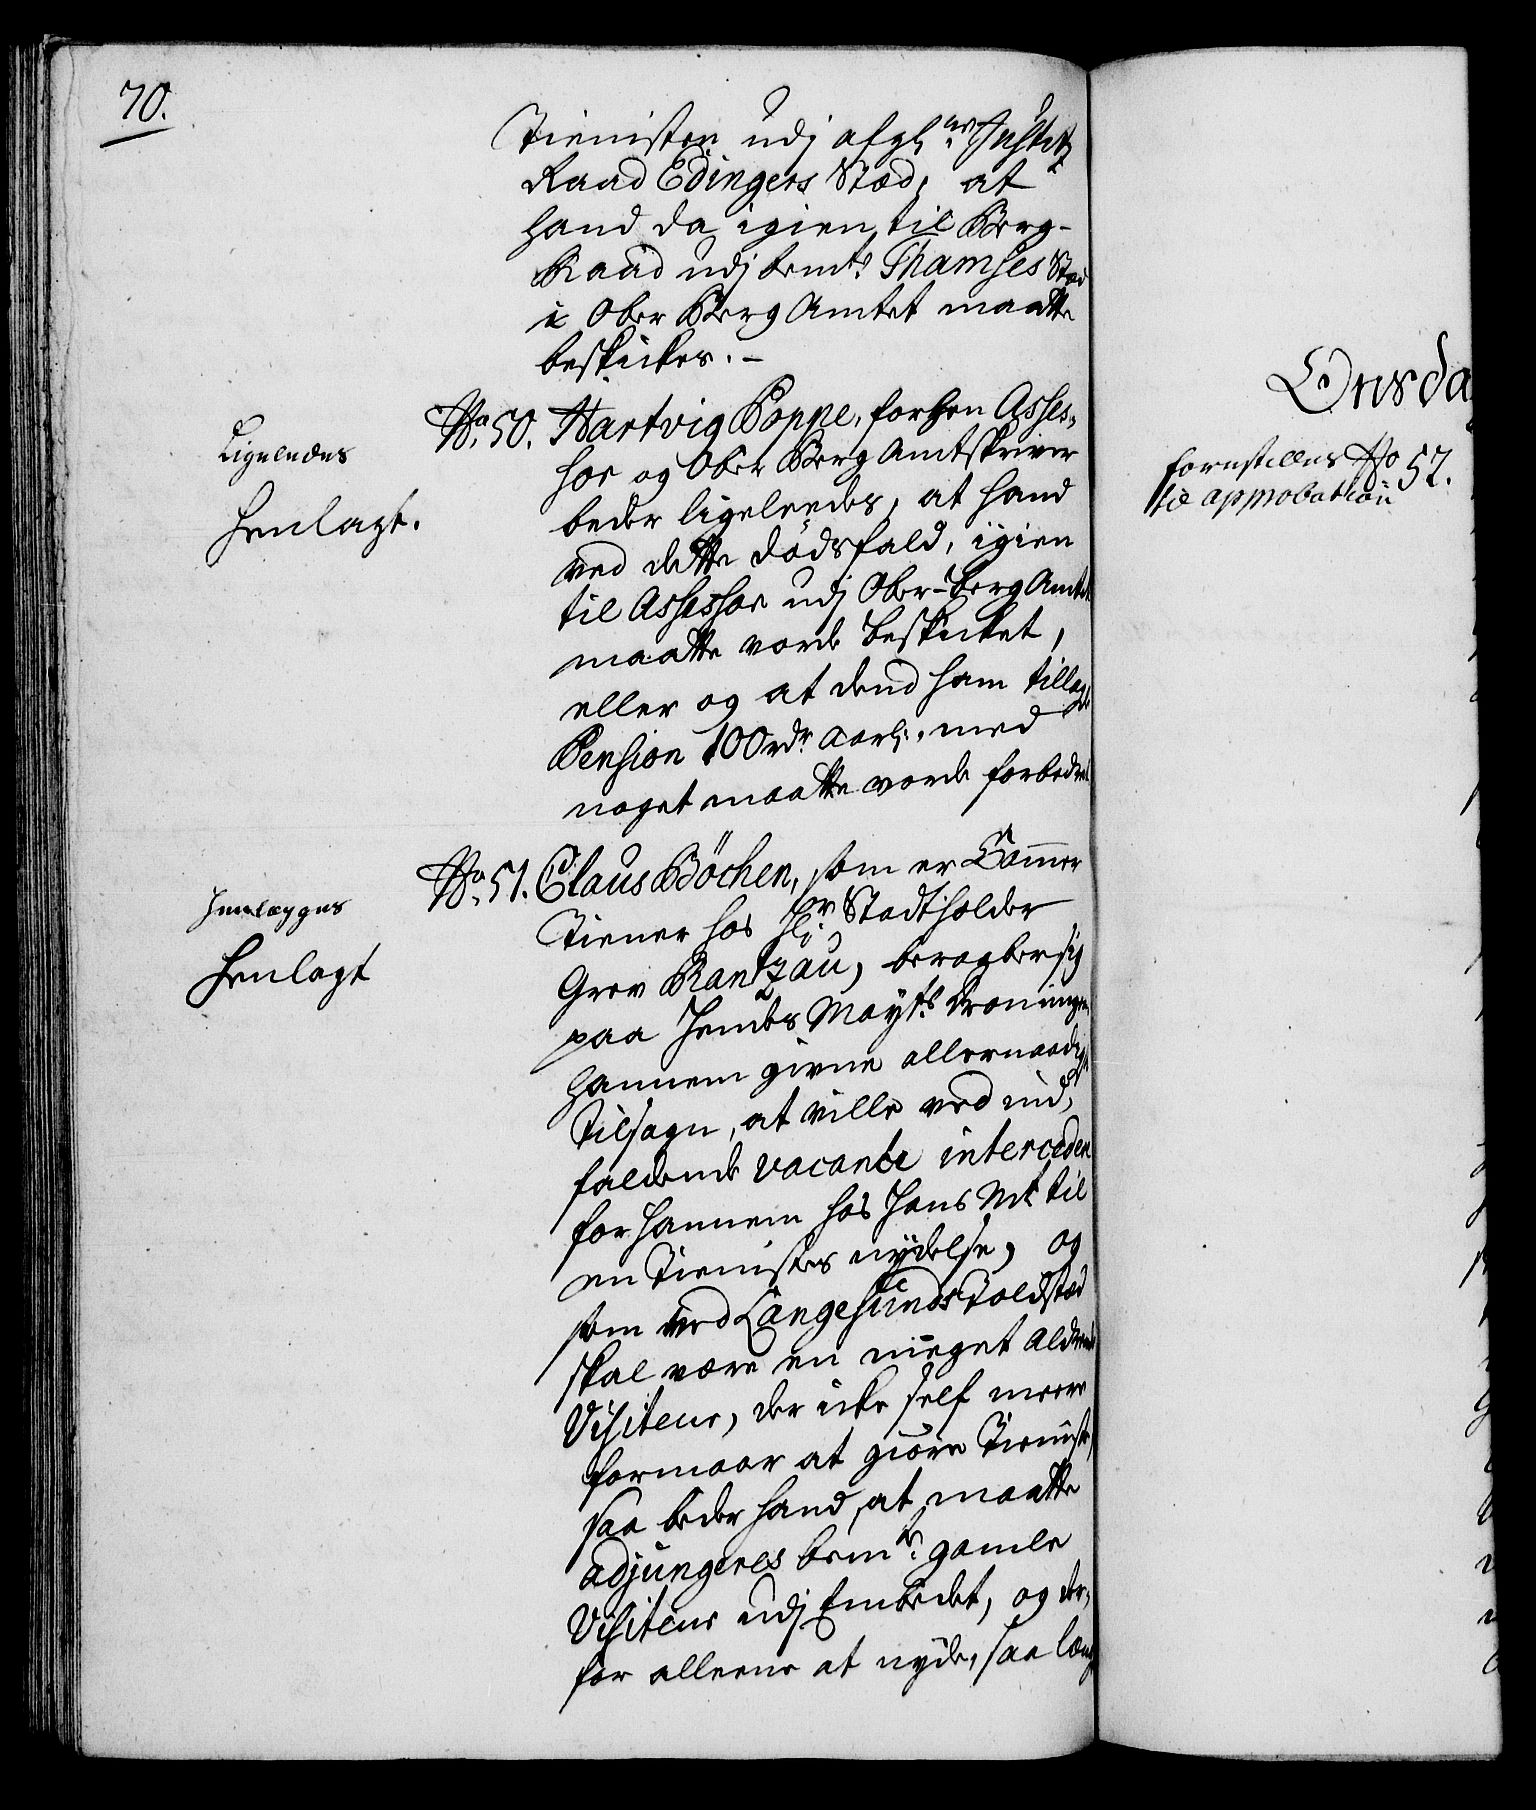 70.
Tienisten udj afgl. nr Justitz
Raad Edingers Stæd, at
hand da igien til Berg-
Raad udj bemt. Thamses Stæd
i Ober Berg Amtet maatte
beskickes. -
Ligeledes
Henlagt.
No. 50. Hartvig Poppe, forhen Asses-
sor og Ober Berg Amtskriver
beder ligeleedes, at hand
ved dette dødsfald, igien
til Assessor udj Ober-Berg Amtet
maatte vorde beskicket,
eller og at dend ham tillagde
Pension 100 rdr. aarl:, med
noget maatte vorde forbedret
Henlægges
Henlagt
No. 51. Claus Böchen, som er Cammer
Tiener hos Hr. Stadtholder
Grev Rantzau, beraaber sig
paa Hendes Mayts. Dronningen
hannem givne allernaadigste
Tilsagn, at ville ved ind-
faldende vacance interceden
for hannem hos Hans Mt. til
en Tienistes nydelse, og
som ved Langesunds Toldsted
skal være en meget Aldrende
Visiteur, der icke self meere
formaar at giøre Tieniste,
saa beder hand, at maatte
adjungeres bemte. gamle
Visiteur udj Embedet, og der-
for alleene at nyde, saa længe
Onsda
forestilles
til approbation
No 52.